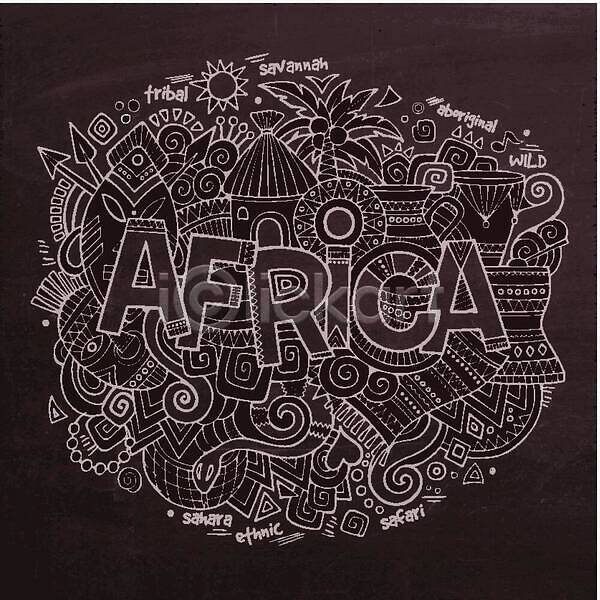 savannah
tribal
aboriginal
WILD
AFRICA
iclickart
sahara
ethnic
safari